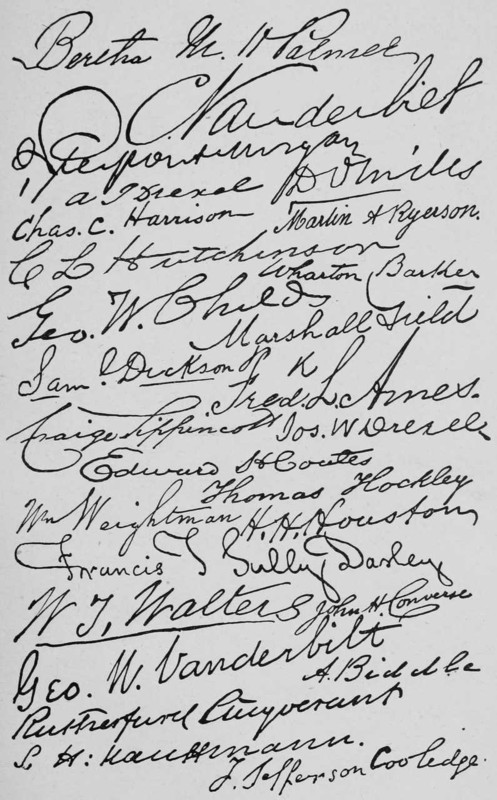 Bertha M. H Palmer
C Vanderbilt
J Pierpont Morgan
A J Drexel D O Mills
Chas. C. Harrison Martin A Ryerson.
C L Hutchinson
Wharton Barker
Geo. W. Childs
Marshall Field
Sam. Dickson
Fred. L. Ames.
Craige Lippincott Jos. W Drexel
Edward H Coates
Thomas Hockley
Wm Weightman H. H. Houston
Francis T Sully Darley
W T, Walters John H. Converse
Geo. W. Vanderbilt
A. Biddle
Rutherfurd Stuyvesant
S. H. Kauffmann.
J. Jefferson Coolidge.